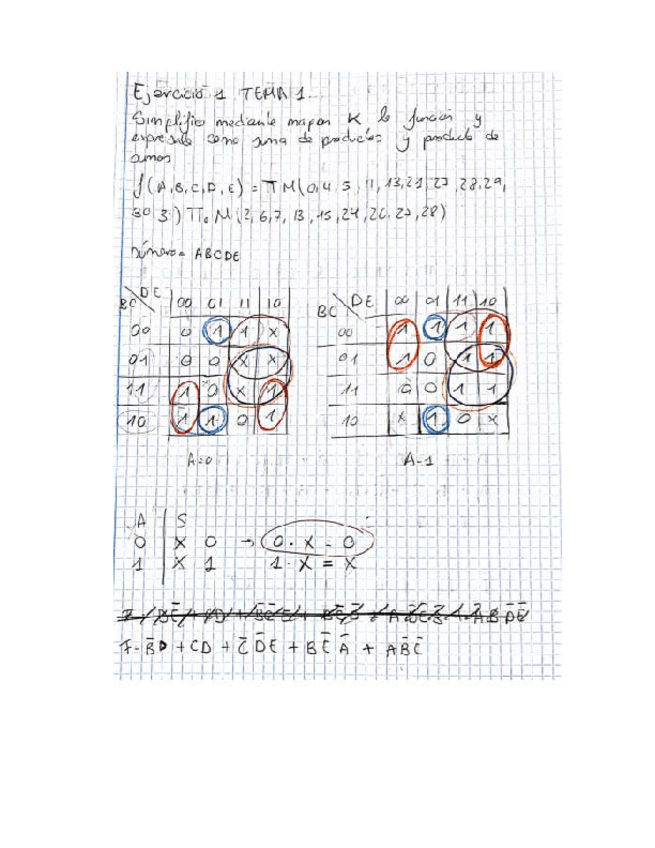 Ejercicio 1 TEMA 1.
Simplifio mediante mapas K la función y
expresala como suma de productos y producto de
sumas
f(A,B,C,D,E) = πM(0,4,5,11,13,21,27,28,29,
30 3.) π₀M(2,6,7,13,15,24,26,27,28)
número= ABCDE
BC DE 00 01 11 10
00 0 1 1 X
01 0 0 X X
11 1 0 X 1
10 1 1 0 1
A=0
BC DE 00 01 11 10
00 1 1 1 1
01 1 0 1 1
11 0 0 1 1
10 X 1 0 X
A-1
A S
0 X 0 → 0 · X - 0
1 X 1 1 · X = X
7- B̄D + CD + C̄D̄E + BĒĀ + AB̄Ē